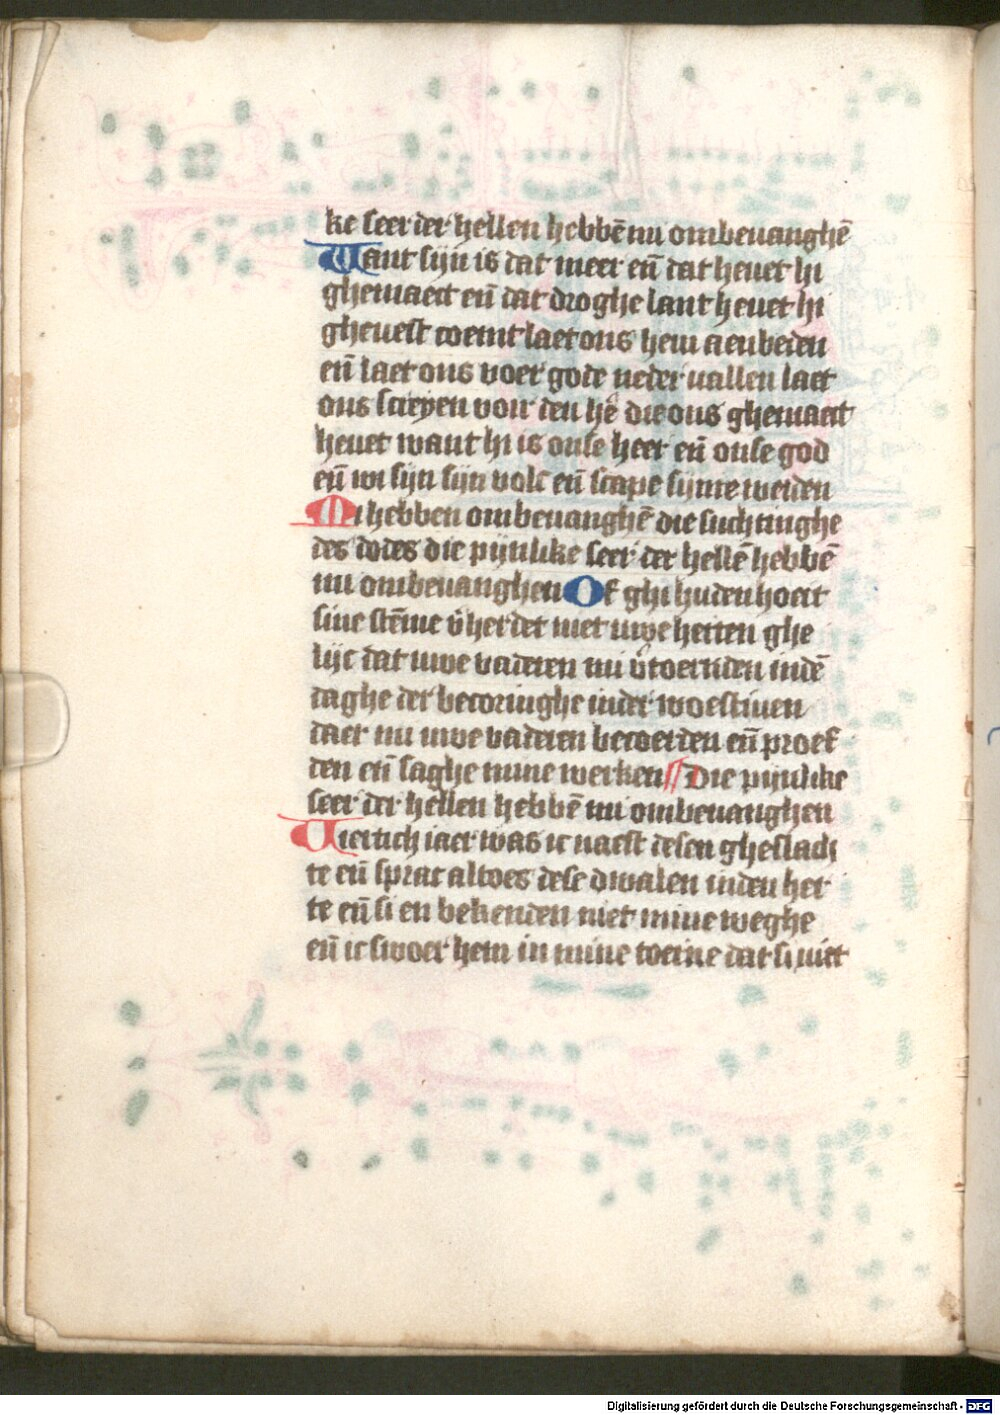 ke seer der hellen hebbē mi ombeuanghē
Want sijn is dat meer eñ dat heuet hi
ghemaect eñ dat droghe lant heuet hi
gheuest coemt laet ons hem aenbeden
eñ laet ons voer gode neder uallen laet
ons screyen voir den hē die ons ghemaect
heuet want hi is onse heer eñ onse god
eñ wi sijn sijn volc eñ scape sijnre weiden
Mi hebben ombeuanghē die suchtinghe
des dodes die pijnlike seer der hellē hebbē
mi ombeuanghen Of ghi huden hoert
sine stēme v̄herdet niet uwe herten ghe
lijc dat uwe vaderen mi v̄toernden indē
daghe der becoringhe inder woestinen
daer mi uwe vaderen becoerden eñ proef
den eñ saghe mine werken Die pijnlike
seer der hellen hebbē mi ombeuanghen
Viertich iaer was ic naest desen gheslach
te eñ sprac altoes dese dwalen inden her
te eñ si en bekenden niet mine weghe
eñ ic swoer hem in mine toerne dat si niet
Digitalisierung gefördert durch die Deutsche Forschungsgemeinschaft - DFG